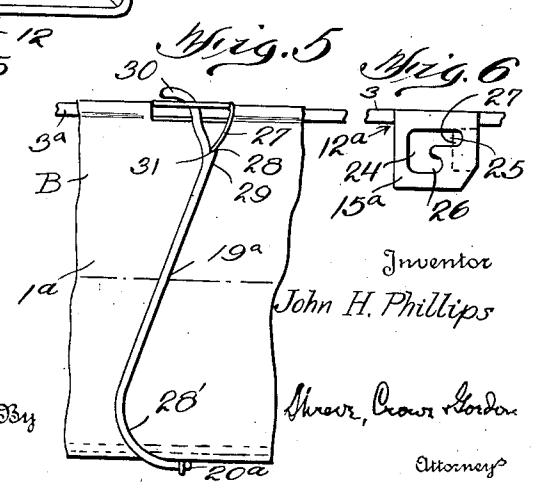 12
5
Fig. 5
Fig. 6
30
3
27
3a
27
12a
31
28
24
25
B
29
15a
26
19a
1a
Inventor
John H. Phillips
28'
By
Shreve, Crowe & Gordon
20a
Attorneys